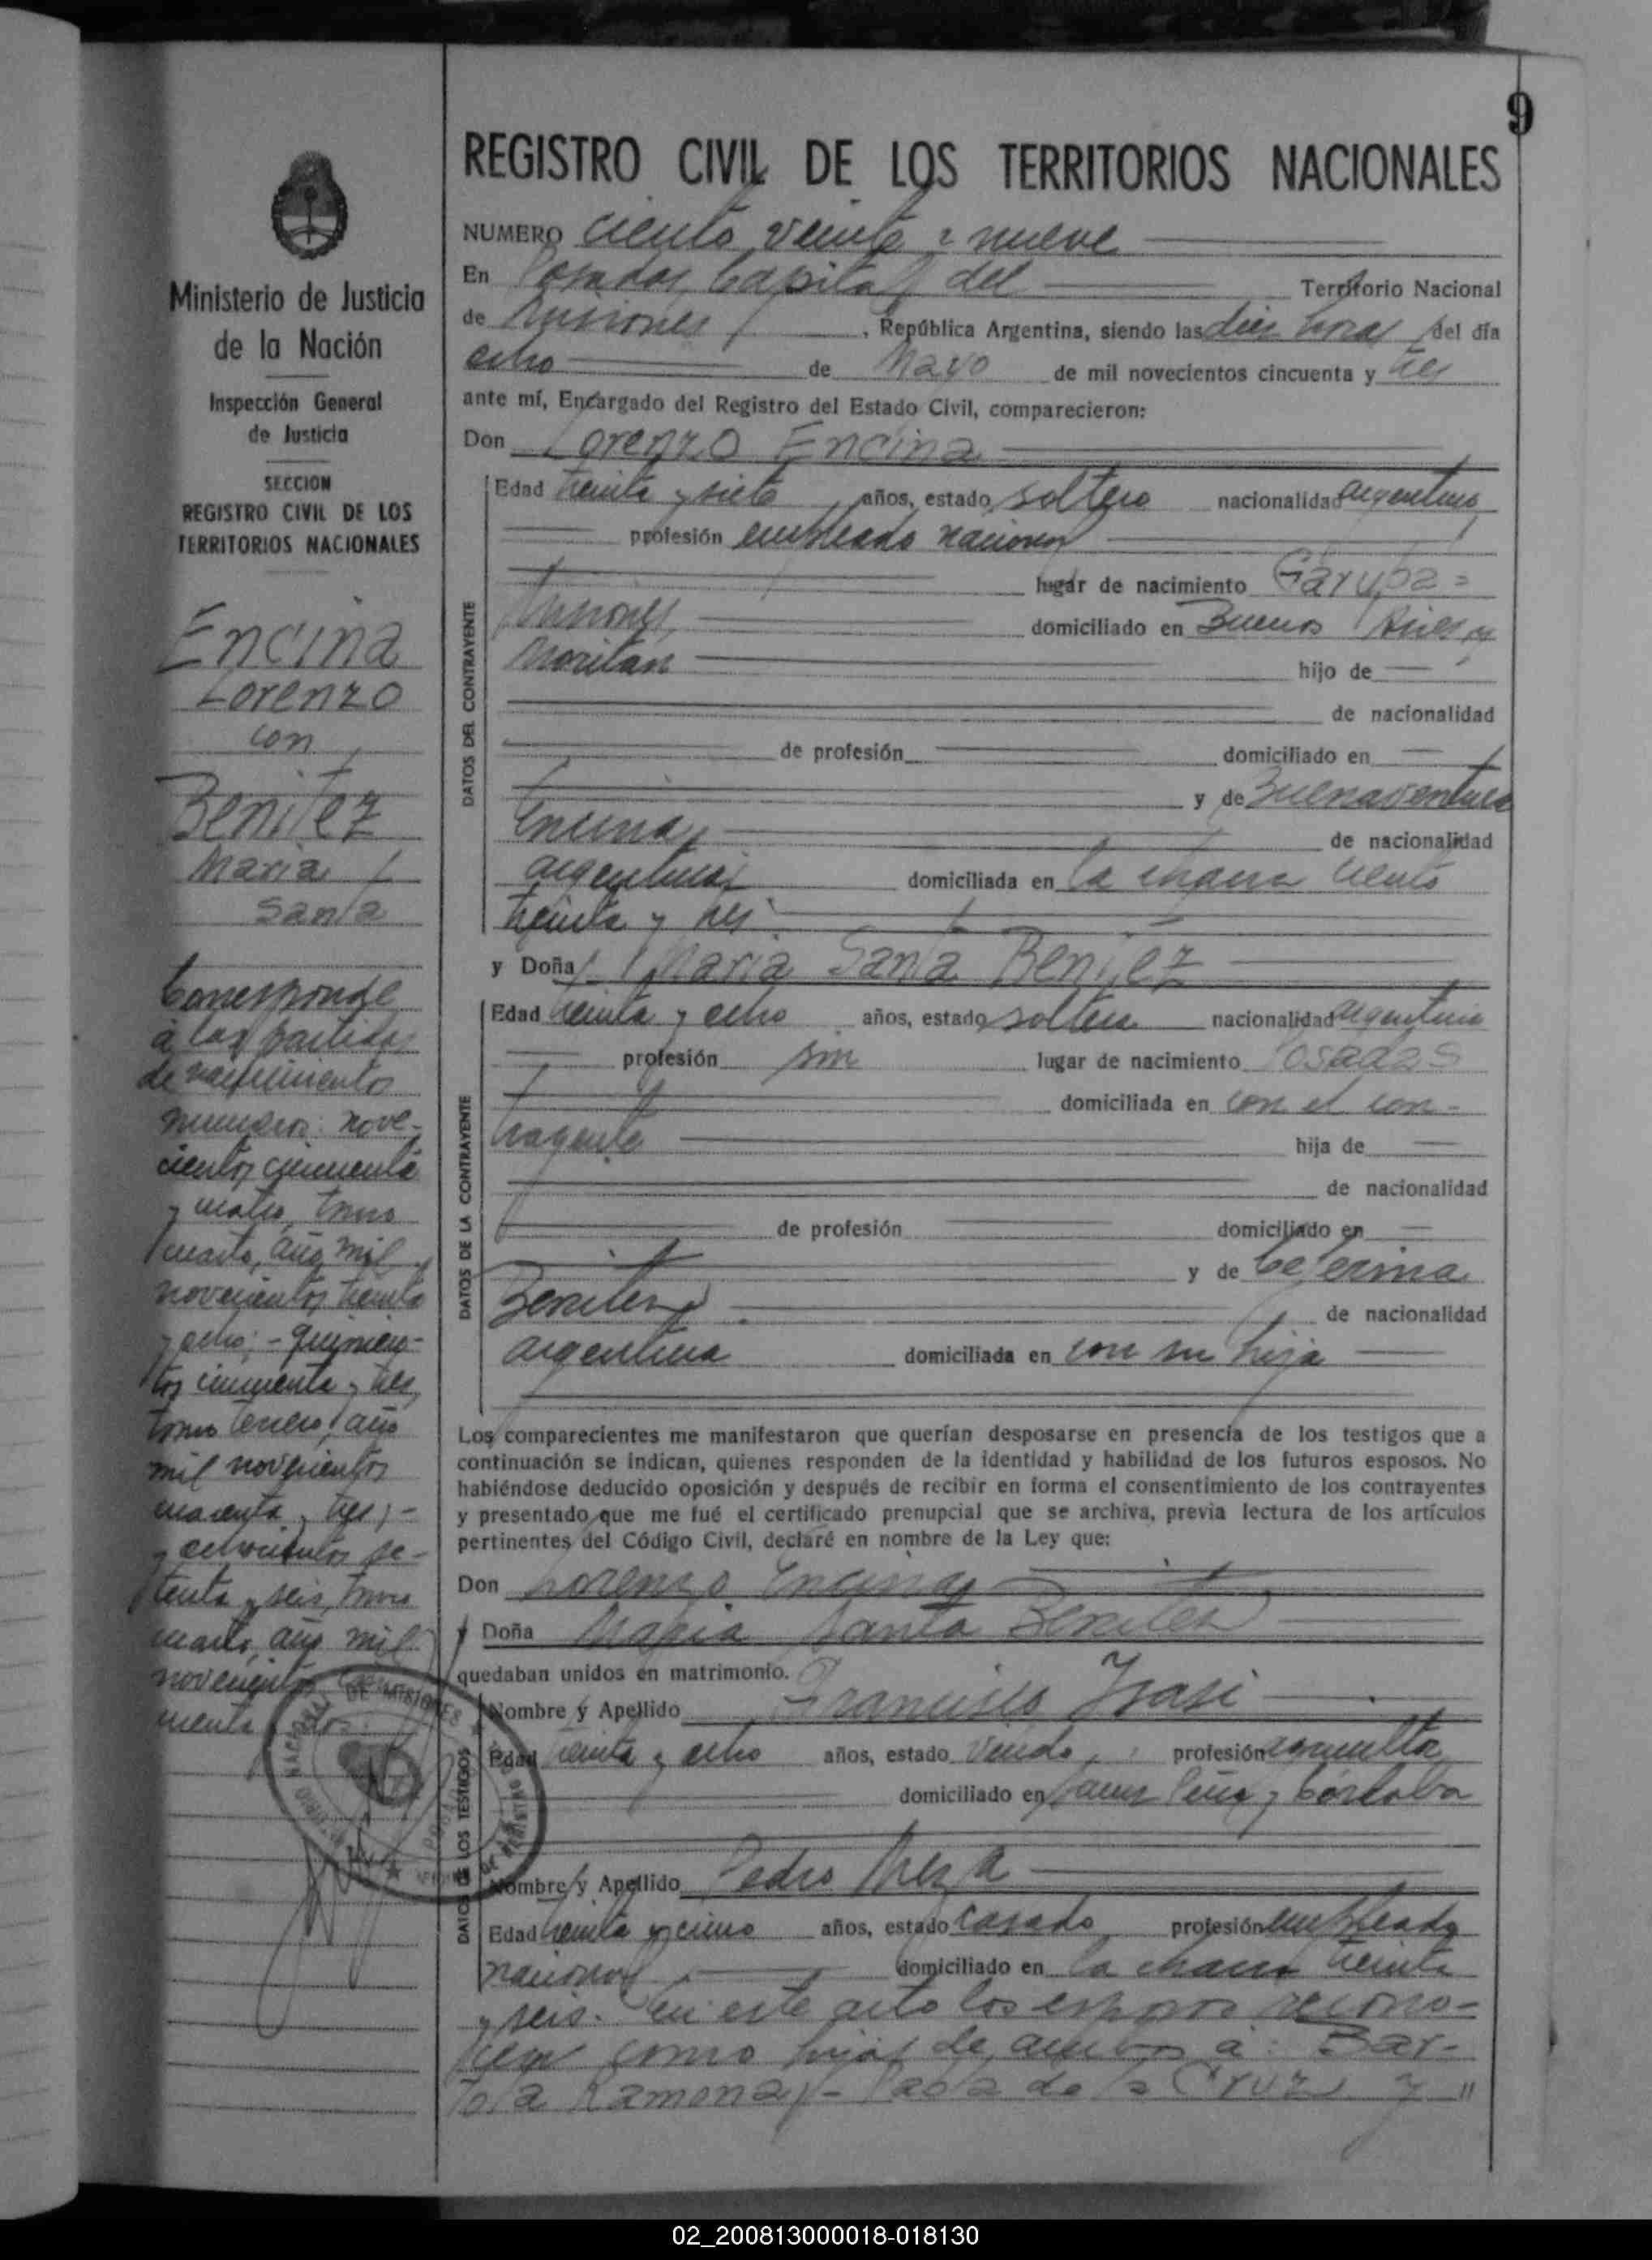 9
REGISTRO CIVIL DE LOS TERRITORIOS NACIONALES
Ministerio de Justicia
de la Nación
Inspección General
de Justicia
SECCION
REGISTRO CIVIL DE LOS
TERRITORIOS NACIONALES
Encina
Lorenzo
con
Benitez
Maria
Santa
Corresponde
a las partidas
de nacimientos
numeros: nove-
cientos cincuenta
y cuatro, tomo
cuarto, año mil
novecientos treinta
y ocho; - quinien-
tos cincuenta y tres,
tomo tercero, año
mil novecientos
cuarenta y tres; -
y ochocientos se-
tenta y seis, tomo
cuarto, año mil
novecientos cin-
cuenta y dos.
NUMERO ciento veinte y nueve
En Posadas Capital del Territorio Nacional
de Misiones, República Argentina, siendo las diez horas del día
ocho de Mayo de mil novecientos cincuenta y tres
ante mí, Encargado del Registro del Estado Civil, comparecieron:
Don Lorenzo Encina
DATOS DEL CONTRAYENTE
Edad treinta y siete años, estado soltero nacionalidad argentino
profesión empleado nacional
lugar de nacimiento Garupa =
Misiones domiciliado en Buenos Aires y
Moritan hijo de
de nacionalidad
de profesión domiciliado en
y de Buenaventura
Encina de nacionalidad
argentina domiciliada en la chacra ciento
treinta y tres.
y Doña Maria Santa Benitez
DATOS DE LA CONTRAYENTE
Edad treinta y ocho años, estado soltera nacionalidad argentina
profesión sin lugar de nacimiento Posadas
domiciliada en con el con-
trayente hija de
de nacionalidad
de profesión domiciliado en
y de Ceferina
Benitez de nacionalidad
argentina domiciliada en con su hija
Los comparecientes me manifestaron que querían desposarse en presencia de los testigos que a
continuación se indican, quienes responden de la identidad y habilidad de los futuros esposos. No
habiéndose deducido oposición y después de recibir en forma el consentimiento de los contrayentes
y presentado que me fué el certificado prenupcial que se archiva, previa lectura de los artículos
pertinentes del Código Civil, declaré en nombre de la Ley que:
Don Lorenzo Encina
y Doña Maria Santa Benitez
quedaban unidos en matrimonio.
DATOS DE LOS TESTIGOS
Nombre y Apellido Francisco
Edad treinta y ocho años, estado viudo, profesión
domiciliado en Saenz Peña y Córdoba
Nombre y Apellido Pedro Meza
Edad treinta y cinco años, estado casado profesión empleado
nacional domiciliado en la chacra treinta
y seis. En este acto los esposos recono-
cen como hijas de ambos a: Bar-
tola Ramona; - Paola de la Cruz; y "
02_200813000018-018130